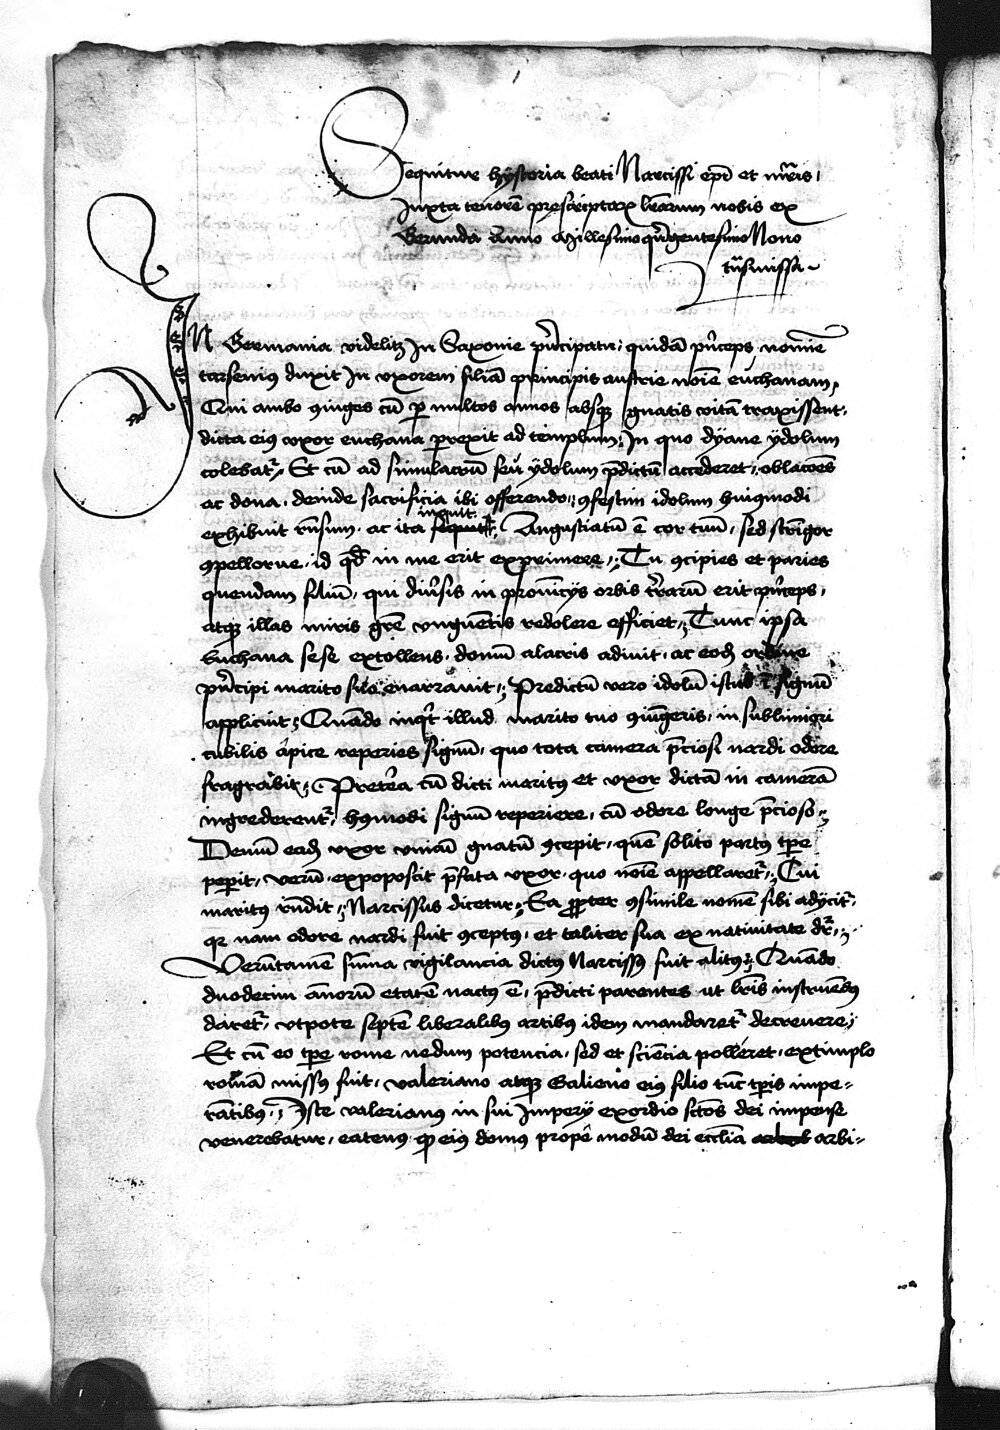 Sequitur hystoria beati Narcissi ep̄i et m̄ris,
Iuxta tenorē prescriptarꝝ l̄rarum nobis ex
Gerunda Anno Millesimo qͥngentesimo Nono
tn̄smissa
IN Germania videlitz In Saxonie pͥncipatu, quidā pͥnceps nomīe
tarsenius duxit In vxorem filiā principis austrie noīe euchanam,
Qui ambo ꝯiuges cū ꝑ multos annos absqꝫ gnatis vitā traxissent,
dicta eiꝰ vxor euchana prexit ad templum, In quo dyane ydolum
colebatᷣ, Et cū ad simulacrū seu ydolum p̄dictū accederet, oblacōes
ac dona, deinde sacrificia ibi offerendo, ꝯfestim idolum huiꝰmodi
exhibuit risum, ac ita inquit, Angustiatū ē cor tuū, sed stringor
ꝯpellorue, id qd̄ in me erit exprimere, Tu ꝯcipies et paries
quendam filiū, qui diuͥsis in prouīcijs orbis t̄rarū erit pͥnceps,
atqꝫ illas miris gͬē vnguētis redolere efficiet, Tunc ipsa
Euchana sese extollens, domū alacris adiuit, ac eodē ordine
pͥncipi marito suo enarrauit, Predictū vero idolū istud ē signū
applicuit, Quādo inqͥt illud marito tuo ꝯiūgeris, in sublimiori
cubilis apice reperies signū, quo tota camera p̄ciosi nardi odore
fragrabit, Preterea cū dicti maritꝰ et vxor dictā in camerā
ingrederentᷣ, hꝰmodi signū reperiere, cū odore longe p̄cioso,
Demū eadē vxor vnicū gnatū ꝯcepit, quē solito partꝰ tp̄e
peperit, verū expoposcit p̄fata vxor, quo noīe appellaretᷣ, Cui
maritꝰ rn̄dit, Narcissus dicetur, Ea ꝓpter ꝯsimile nomē sibi adijcitᷣ
qꝛ nam odore nardi fuit ꝯceptꝰ, et taliter sua ex natiuitate drͣ,
Verūtamē sūma vigilancia dictꝰ Narcissꝰ fuit alitꝰ, Quādo
duodecim annorū etatē nactꝰ ē, p̄dicti parentes ut l̄ris instruēdꝰ
daretᷣ, vtpote septē liberalibꝰ artibꝰ idem mandaretᷣ decreuere,
Et cū eo tp̄e rome nedum potencia, sed et sciēcia polleret, extimplo
romā missꝰ fuit, valeriano atqꝫ Galieno eiꝰ filio tūc tp̄is impe-
rātibꝰ, Iste valerianus in sui Imperij exordio sctōs dei impense
venerebatur, eatenꝰ qꝫ eiꝰ domus prope modū dei eccl̄ia orbi-